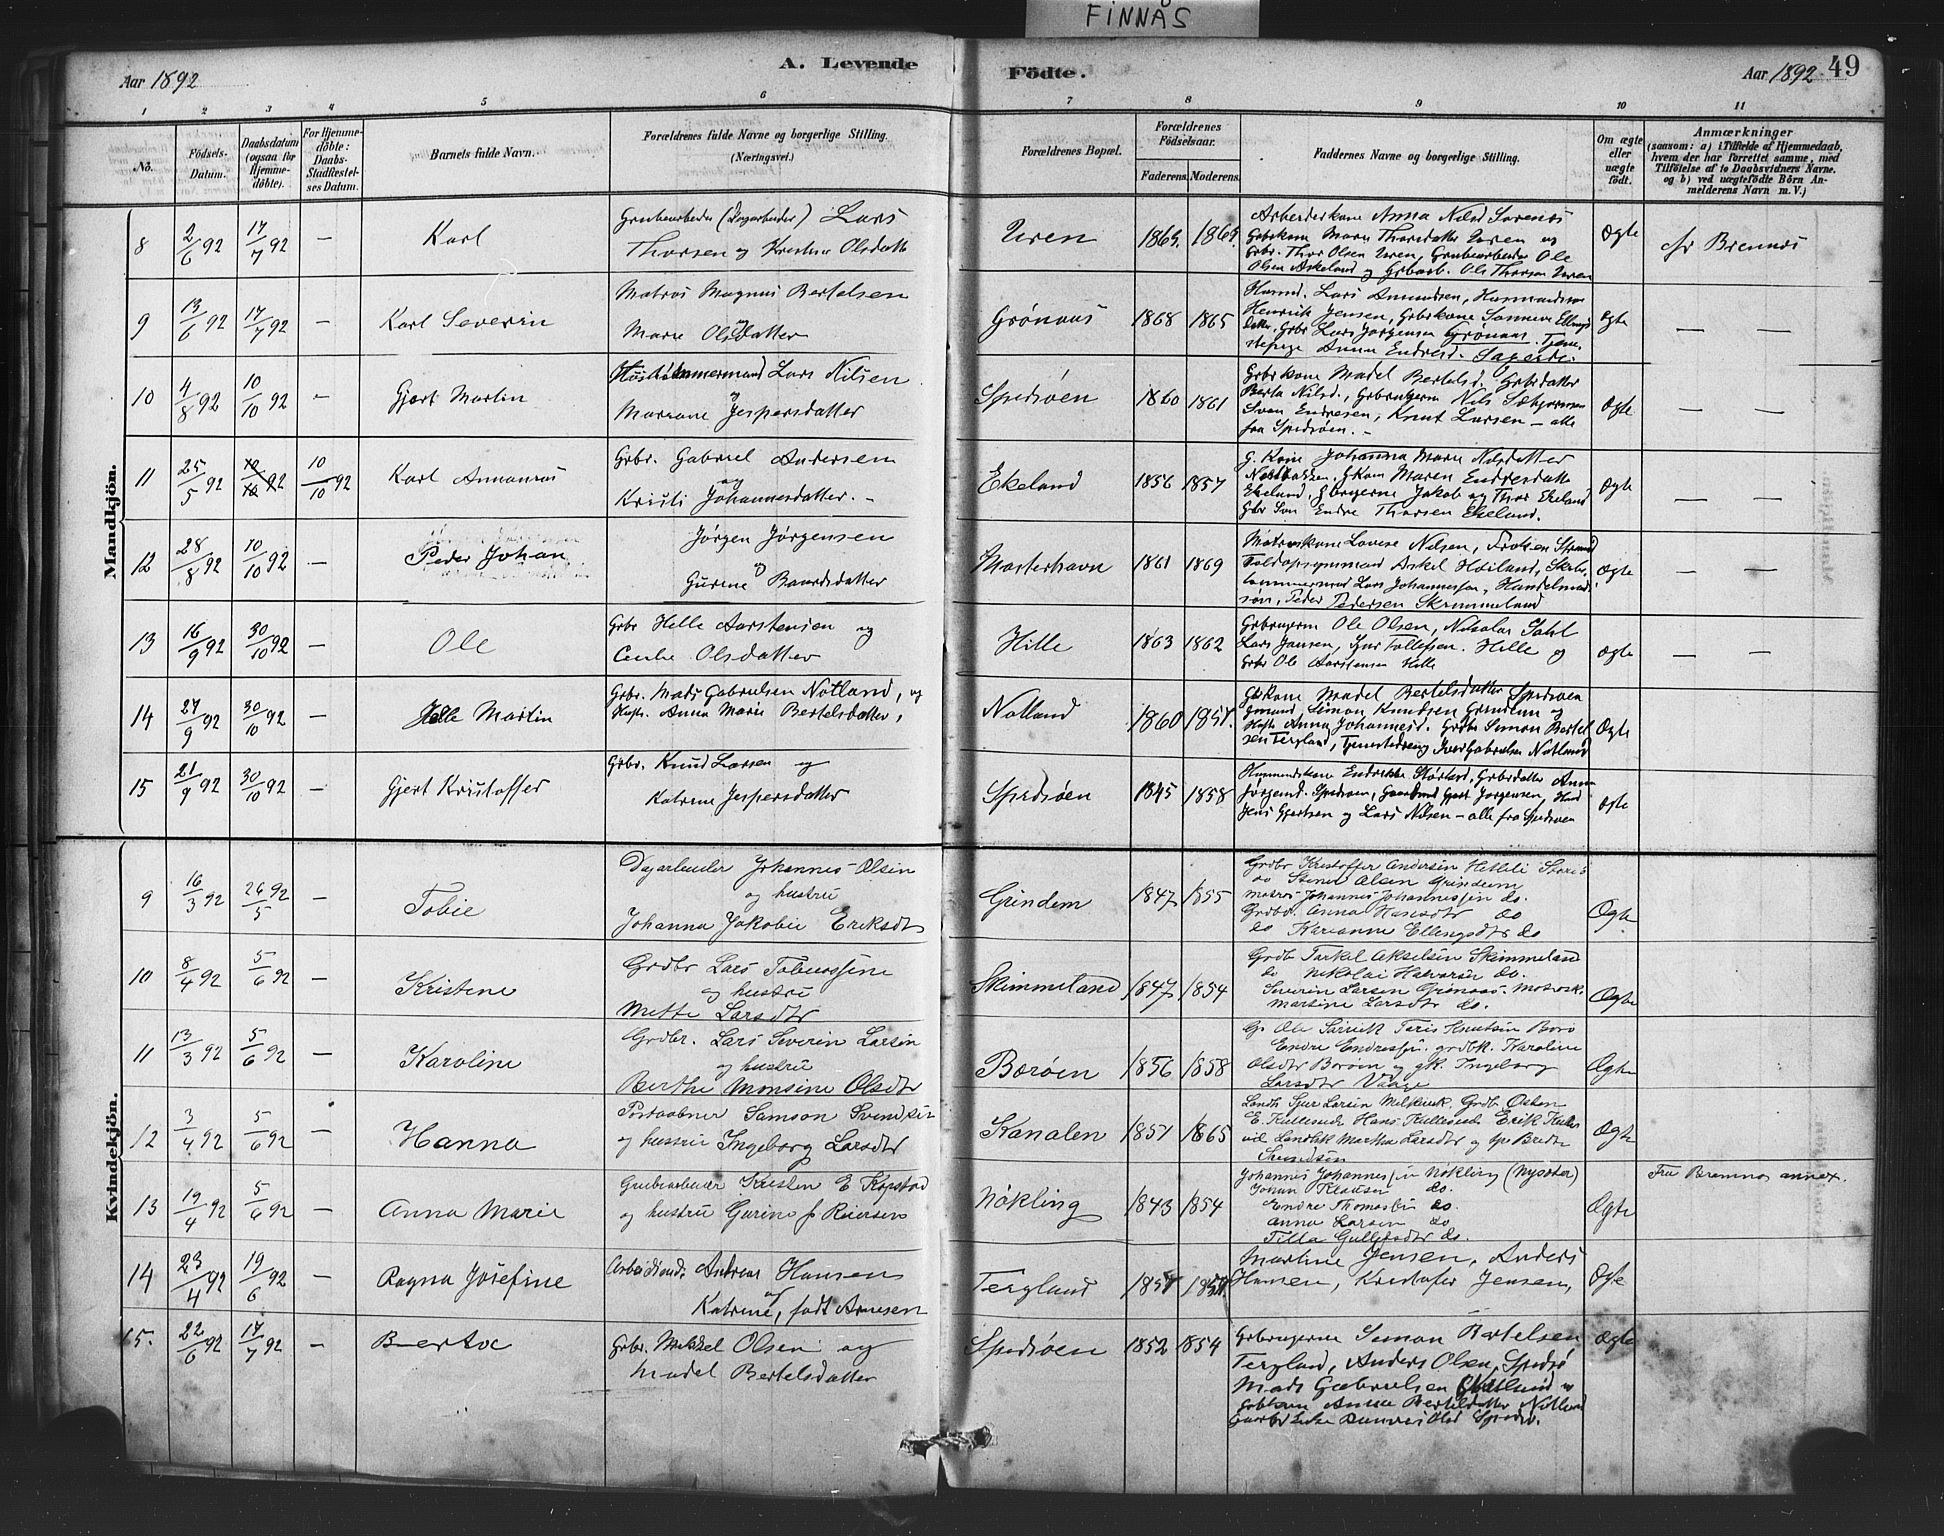 FINNÅS
Aar 1892
A. Levende
Födte.
Aar 1892
49
1 2 3 4 5 6 7 8 9 10 11
No.
Födsels-Datum.
Daabsdatum (ogsaa for Hjemme-döbte).
For Hjemme-döbte: Daabs-Stadfestel-ses Datum.
Barnets fulde Navn.
Forældrenes fulde Navne og borgerlige Stilling. (Næringsvei.)
Forældrenes Bopæl.
Forældrenes Födselsaar.
Faderens. Moderens.
Faddernes Navne og borgerlige Stilling.
Om ægte eller uægte födt.
Anmærkninger
(saasom: a) i Tilfælde af Hjemmedaab, hvem der har forrettet samme, med Tilföielse af to Daabsvidners Navne, og b) ved uægtefödte Börn An-melderens Navn m. V.)
Mandkjön.
8 2/6 92 17/7 92 — Karl
Grubearbeider (Dagarbeider) Lars
Thorsen og Kristine Olsdatter
Uren 1869. 1869.
Arbeiderkone Anna
Gbrkone Marie Thorsdatter Uren og
Grbr. Thor Olsen Uren, Grubearbeider Ole
Olsen Askeland og Ole Thorsen Uren
Ægte
Brennes
9 13/6 92 17/7 92 — Karl Severin
Matros Magnus Bertelsen
og
Marie Olsdatter
Grönaas 1868 1865
Husmd. Lars Amundsen, Husmandssøn
Henrik Jensen, Gbrkone Sanneve Ellings
datter, Gbr Lars Jørgensen Grönaas. Tjene-
stepige Anna Endresd.
Ægte — —
10 4/8 92 10/10 92 - Gjert Martin
Lars Nilsen
og
Mariane Jespersdatter
Spedsöen 1860 1861
Gbrkone Madel Bertelsd. Gbrdatter
Berta Nilsd., Gbrugerne Nils
Sven Endresen, Knut Larsen — alle
fra Spedsöen. -
Ægte — —
11 25/5 92 10/10 92 10/10 92 Karl Annanias
Gbr. Gabriel Andersen
og
Kristi Johannesdatter. -
Ekeland 1856 1857
G. Kone Johanna Marie Nilsdatter
G Kone Maren Endresdatter
Ekeland, Gbrugerne Jakob og Thor Ekeland
Gbr Søn Endre Thorsen Ekeland.
Ægte — —
12 28/8 92 10/10 92 — Peder Johan
Jörgen Jörgensen
og
Gurine Baardsdatter
Mosterhavn 1861 1869
Matroskone Lovise Nilsen, Frøken Strand
Toldopsynsmand Askel Høiland,
Lars Johannessen, Handelsmand
Peder Pedersen Skimmeland
Ægte — —
13 16/9 92 30/10 92 — Ole
Gbr Helle Aarstensen og
Olsdatter
Hille 1863 1862
Gbrugerne Ole Olsen, Nikolai Dahl
Lars Jansen, Tollefsen. Hille og
Gbr Ole Aarstensen Hille
Ægte — —
14 27/9 92 30/10 92 — Jelle Martin
Gbr. Mads Gabrielsen Notland, og
Anna Marie Bertelsdatter,
Notland 1860 1857.
Gbkone Madel Bertelsdatter Spedsöen
Simon Knudsen Grindem og
Anna Johannesd. Gbr Simon Bertel
sen Tergland, Tjenestedreng Iver Gabrielsen Notland
Ægte
15 21/9 92 30/10 92 — Gjert Kristoffer
Gbr. Knud Larsen og
Katrine Jespersdatter
Spedsöen 1845 1858
Husmandskone Endrikke Gbrdatter Anna
Jörgensd. Spedsöen, Gjert Jørgensen,
Jens Gjertsen og Lars Nilsen — alle fra Spedsöen
Ægte
Kvindekjön.
9 16/3 92 26/5 92 — Tobie
Dagarbeider Johannes Olsen
og hustru
Johanna Jakobie Eriksdtr
Grindem 1847 1855
Grdbr Kristoffer Andersen
do Stener Olsen Grindem
matros Johannes Johannessen do.
Grdbr. Anna Hansdtr do
do Karianne Ellingsdtr do
Ægte
10 8/4 92 5/6 92 — Kristine
Grdbr Lars Tobiassen
og hustru
Mette Larsdtr
Skimmeland 1847 1854
Grdb Torkel Akselsen Skimmeland
do Nikolai Halvorsen do.
Severin Larsen Grönaas. Matrosk.
Martine Larsdtr do.
Ægte
11 13/3 92 5/6 92 — Karoline
Grdbr. Lars Severin Larsen
og hustru
Berthe Monsine Olsdtr
Boröen 1856 1858
Knutsen Borö
Endre Endresen. grdbk. Karoline
Olsdtr Boröen og gk. Ingeborg
Larsdtr Vaage
Ægte
12 3/4 92 5/6 92 — Hanna
Postaabner Samson Svendsen
og hustru Ingeborg Larsdtr
Kanalen 1857 1865
Landh Sjur Larsen Melkevik. Grdb Østen
E. Kulleseid Hans Kulleseid Erik
Landhk Martha Larsdtr og Berte
Svendsen
Ægte
13 19/4 92 5/6 92 — Anna Marie
Grubearbeider Kristen E Kopstad
og hustru Gurine f Reiersen
Nökling 1843 1854
Johannes Johannessen Nökling (Nysæter)
Johan Klausen do.
Endre Thomassen do.
Anna Larsen do
Tilla Gulliksdtr do.
Ægte
Fra Bremnes annex.
14 23/4 92 19/6 92 — Ragna Josefine
Arbeidsmd. Andreas Hansen
og
Katrine, født Arnesen
Tergland 1857 1857
Martine Jensen, Anders
Hansen, Kristofer Jensen,
Ægte
15. 22/6 92 17/7 92 — Berta
Gbr. Mikkel Olsen og
Madel Bertelsdatter
Spedsöen 1852 1854
Gbrugerne Simon Bertelsen
Tergland, Anders Olsen, Spedsö
Mads Gabrielsen Notland og
Gbkone Anna Bertelsdatter Notland
Ægte